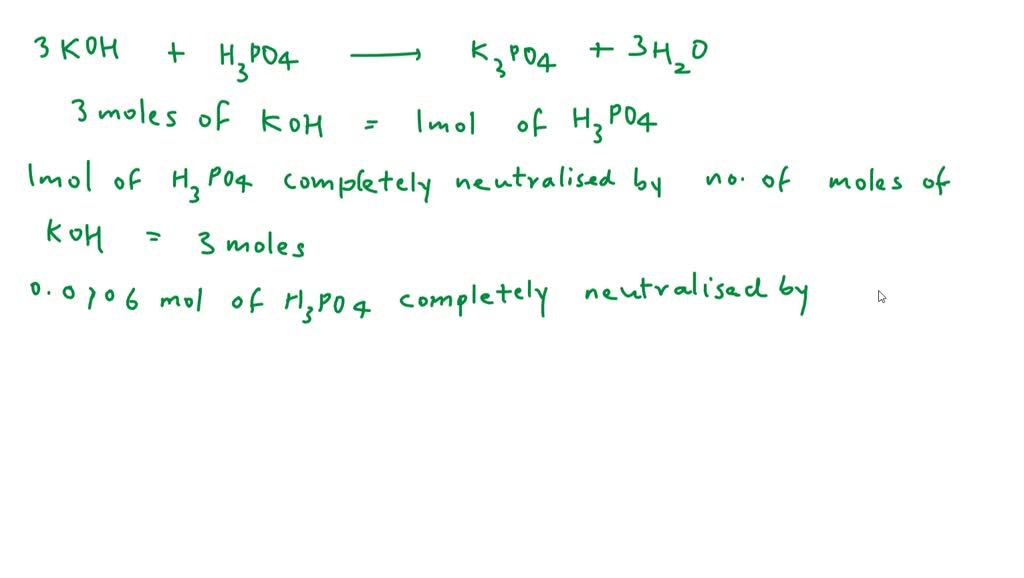 3KOH + H₃PO4 ⟶ K₃PO4 + 3H₂O
3 moles of KOH = 1mol of H₃PO4
1mol of H₃PO4 completely neutralised by no. of moles of
KOH = 3 moles
0.0706 mol of H₃PO4 completely neutralised by